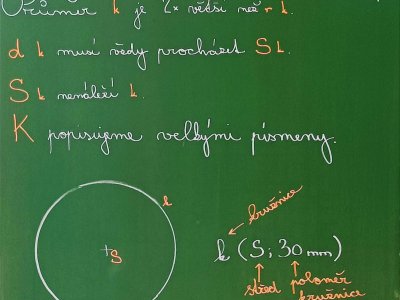 Průměr k je 2x větší než r k.
d k musí vědy procházet S k.
S k nenáleží k.
K popisujeme velkými písmeny.
k
S
kružnice
k (S; 30 mm)
střed poloměr
kružnice